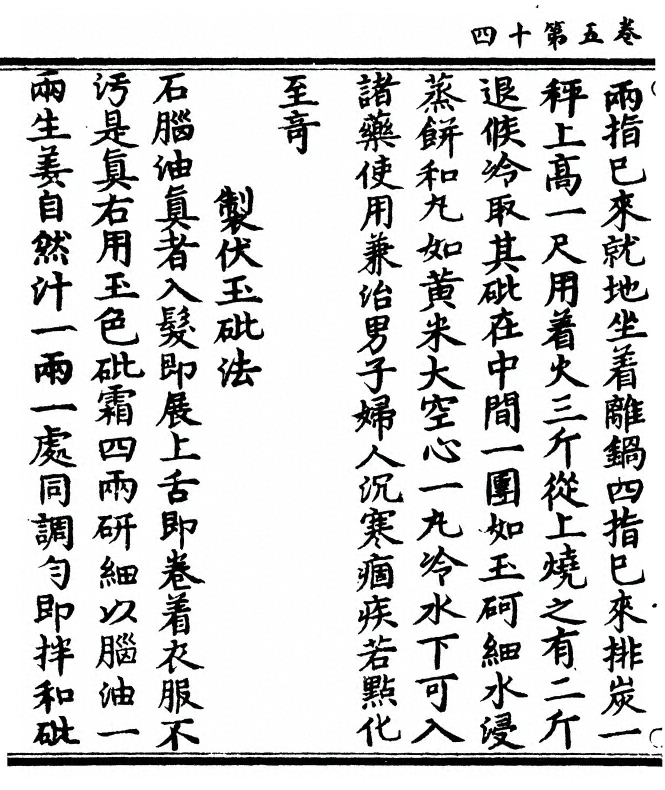 卷五第十四
兩指巳來就地坐着離鍋四指巳來排炭一
秤上高一尺用着火三斤從上燒之有二斤
退候冷取其砒在中間一團如玉砢細水浸
蒸餅和丸如黄米大空心一丸冷水下可入
諸藥使用兼治男子婦人沉寒痼疾若點化
至竒
製伏玉砒法
石腦油真者入髮即展上舌即卷着衣服不
汚是真右用玉色砒霜四兩研細以腦油一
兩生姜自然汁一兩一處同調勻即拌和砒